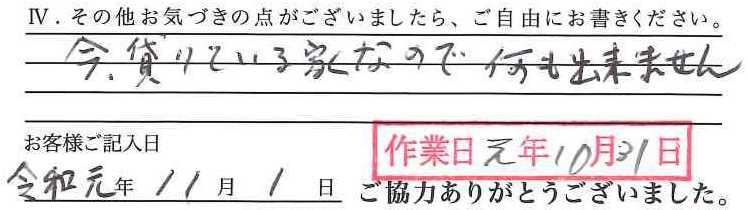 Ⅳ. その他お気づきの点がございましたら、ご自由にお書きください。
今、貸りている家なので 何も出来ません
お客様ご記入日
作業日 元年10月31日
令和元年 11月 1日 ご協力ありがとうございました。